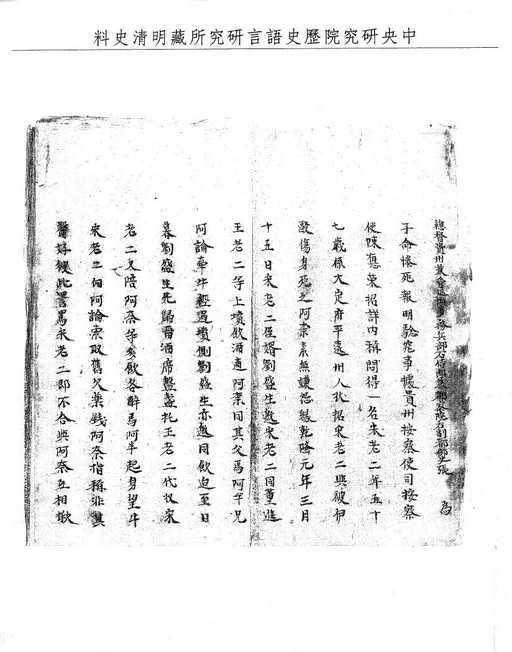 中央研究院歷史語言研究所藏明清史料
總督貴州兼兵部右侍郎兼都察院右副都御史張 為
子命慘死報明驗究事據貴州按察使司按察
使陳悳榮招詳內稱問得一名宋老二年五十
七歲係大定府平遠州人狀招宋老二與被伊
毆傷身死之阿奈素無嫌怨緣乾隆元年三月
十五日宋老二侄壻劉盛生邀宋老二同董進
王老二等上墳飲酒適阿奈同其父馬阿平兄
阿論牽牛經過墳側劉盛生亦邀同飲迨至日
暮劉盛生先歸留酒席盤盞托王老二代收宋
老二又陪阿奈等多飲各醉馬阿平起身望牛
宋老二向阿論索取舊欠藥錢阿奈指稱非真
醫好彼此詈罵宋老二郡不合與阿奈互相揪